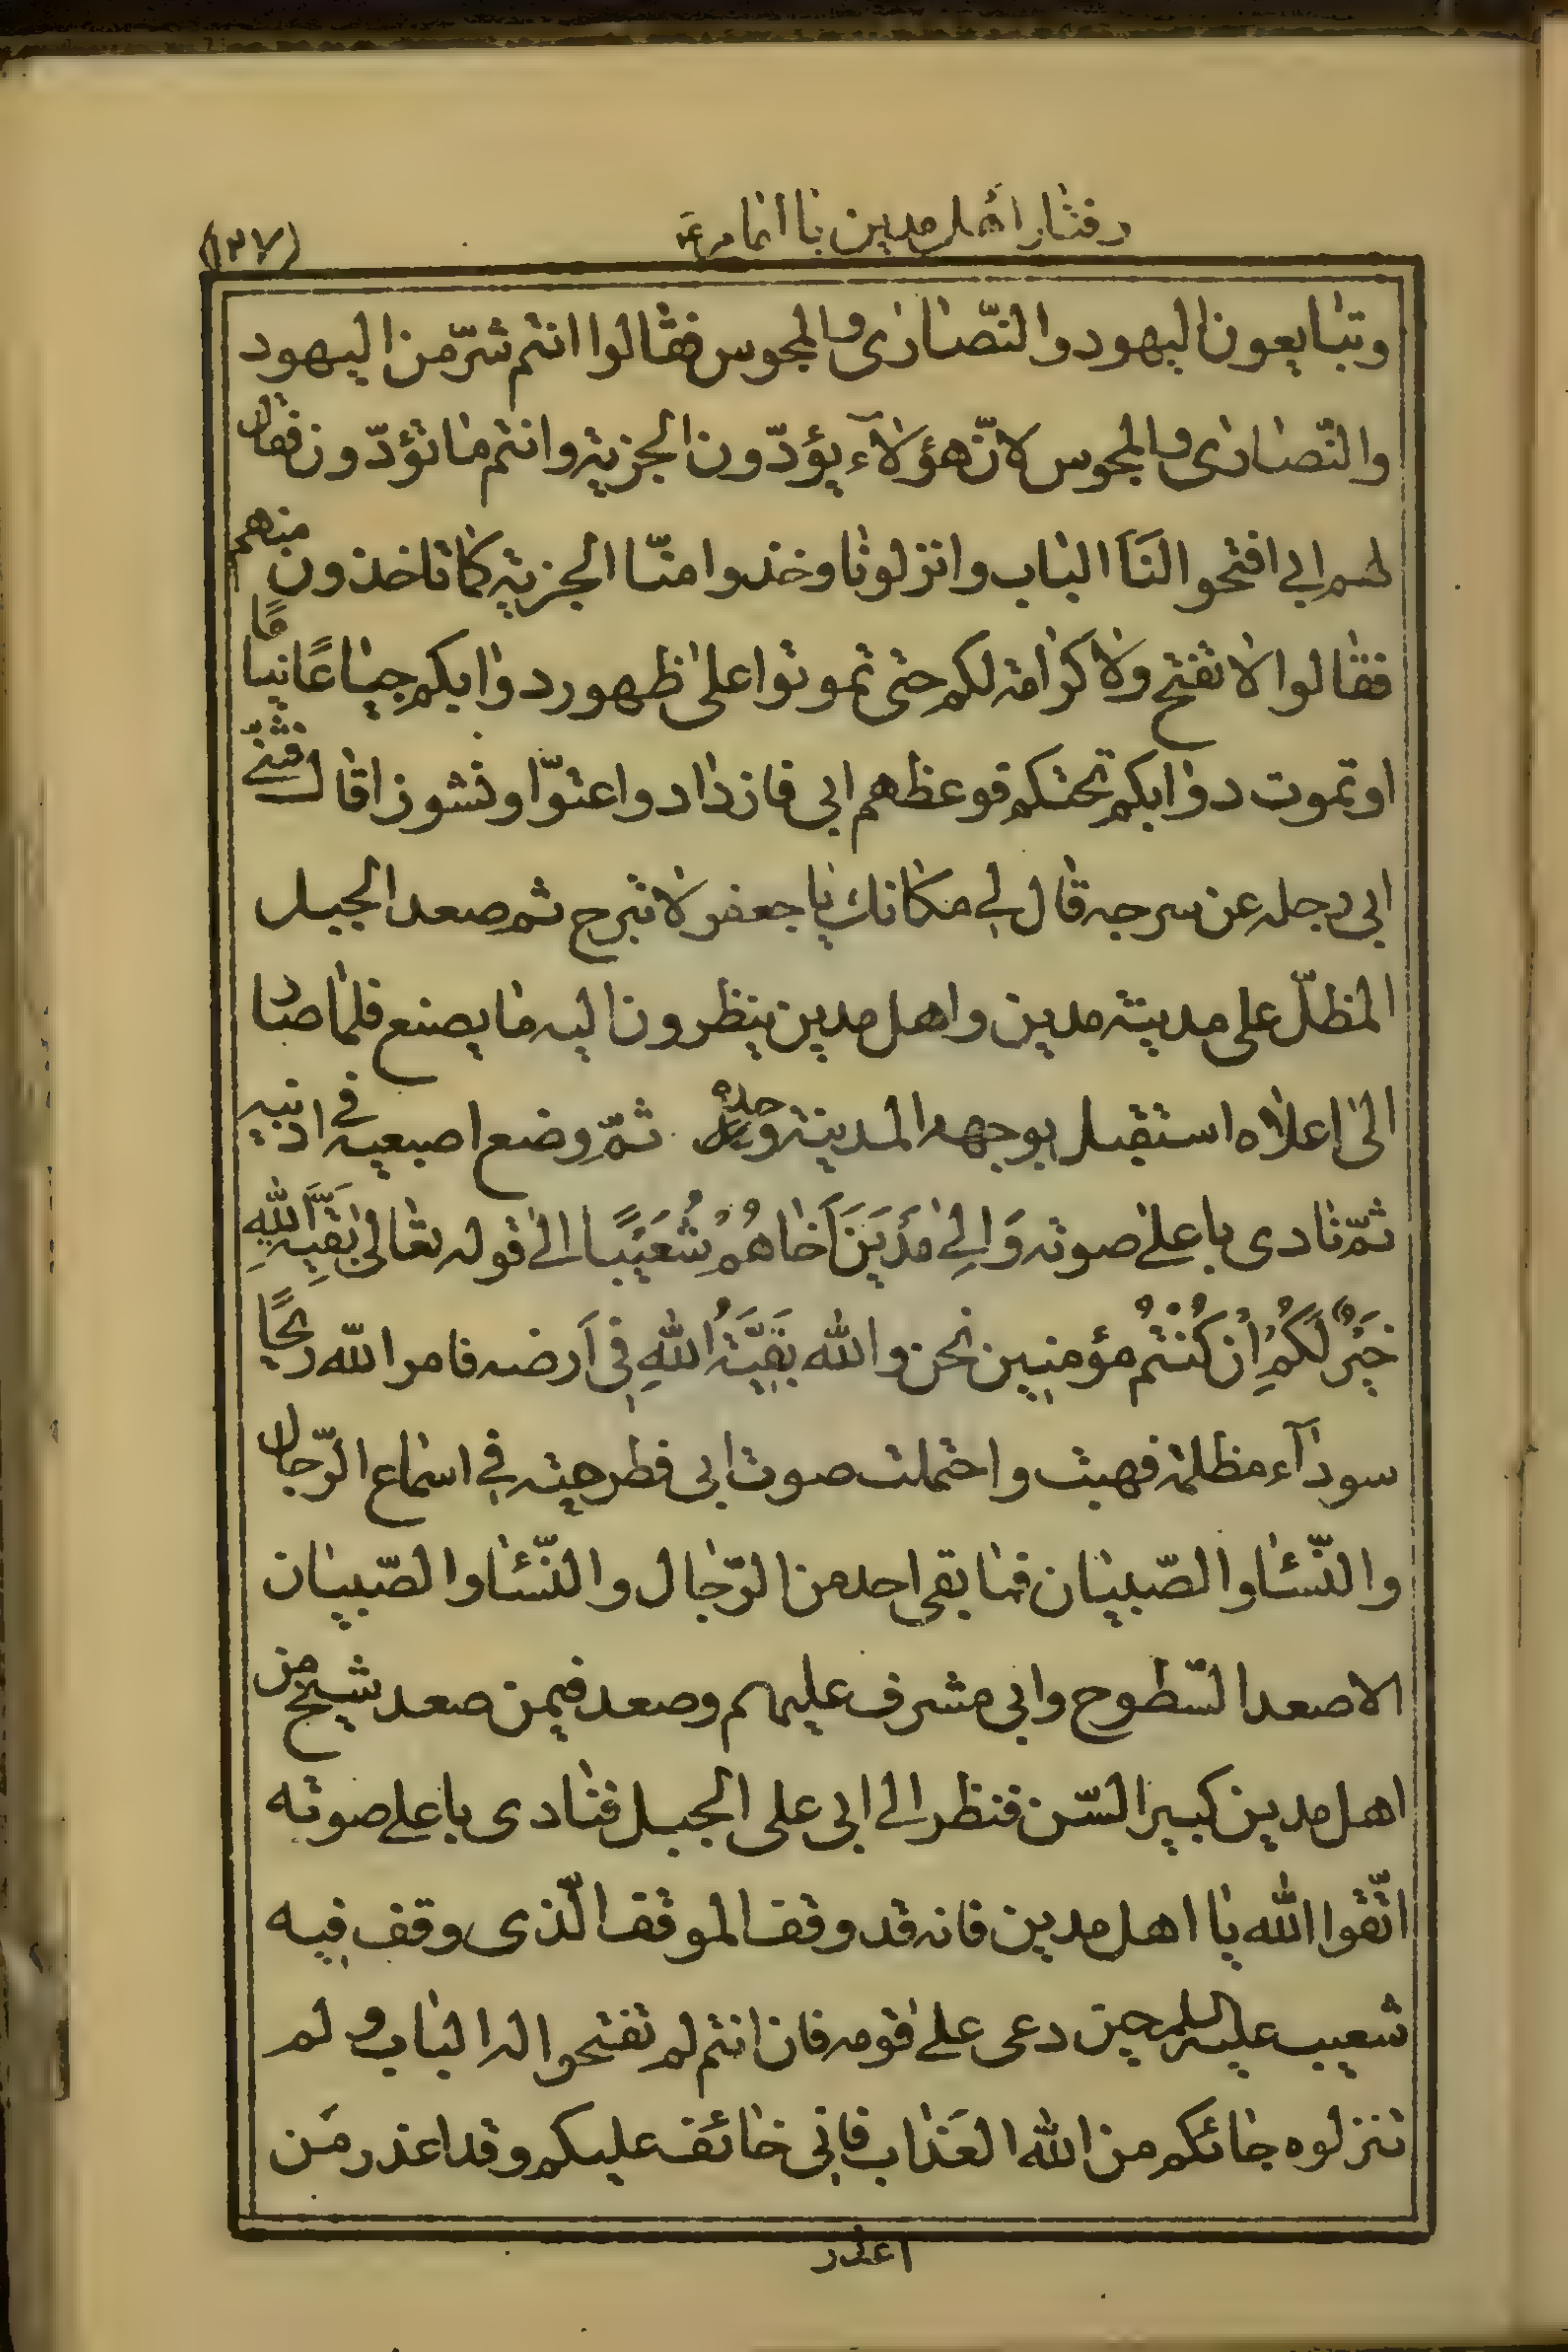 رفتار اهل مدین با امام ع
(۱۳۷)
وتبایعون الیهود والنّصاری والمجوس فقالوا انتم شرّ من الیهود
والنّصاری والمجوس لانّ هؤلآء یؤدّون الجزیة وانتم ما تؤدّون فقال
لهم ابی افتحوا لنَا الباب وانزلونا وخذوا منّا الجزیة کما تاخذون منهم
فقالوا لا نفتح ولا کرامة لکم حتی تموتوا علی ظهور دوابکم جیاعًا نیاعًا
او تموت دوابکم تحتکم فوعظهم ابی فازدادوا عتوّا ونشوزا قال فثنّی
ابی رجله عن سرجه قال لی مکانك یا جعفر لا تبرح ثم صعد الجبل
المظلّ علی مدینة مدین واهل مدین ینظرون الیه ما یصنع فلما صار
الی اعلاه استقبل بوجهه المدینة وحده ثمّ وضع اصبعیه فی اذنیه
ثمّ نادی باعلی صوته وَالِی مَدْیَنَ اَخَاهُمْ شُعَیْبًا الی قوله تعالی بَقِیَّةُ اللّٰهِ
خَیْرٌ لَکُمْ اِنْ کُنْتُمْ مؤمنین نحن والله بَقِیَّةُ اللهِ فی اَرضه فامر اللّه ریحًا
سودآء مظلمة فهبت واحتملت صوت ابی فطرحته فی اسماع الرّجال
والنّسٰا والصّبیان فما بقی احد من الرّجال والنّسٰا والصّبیان
الا صعد السّطوح وابی مشرف علیهم وصعد فیمن صعد شیخ من
اهل مدین کبیر السّن فنظر الی ابی علی الجبل فنادی باعلی صوته
اتّقوا اللّٰه یا اهل مدین فانه قد وقف الموقف الّذی وقف فیه
شعیب علیه السلم حین دعی علی قومه فان انتم لم تفتحوا له الباب و لم
تنزلوه جائکم من اللّٰه العَذاب فانی خائف علیکم وقد اعذر مَن
اعذر